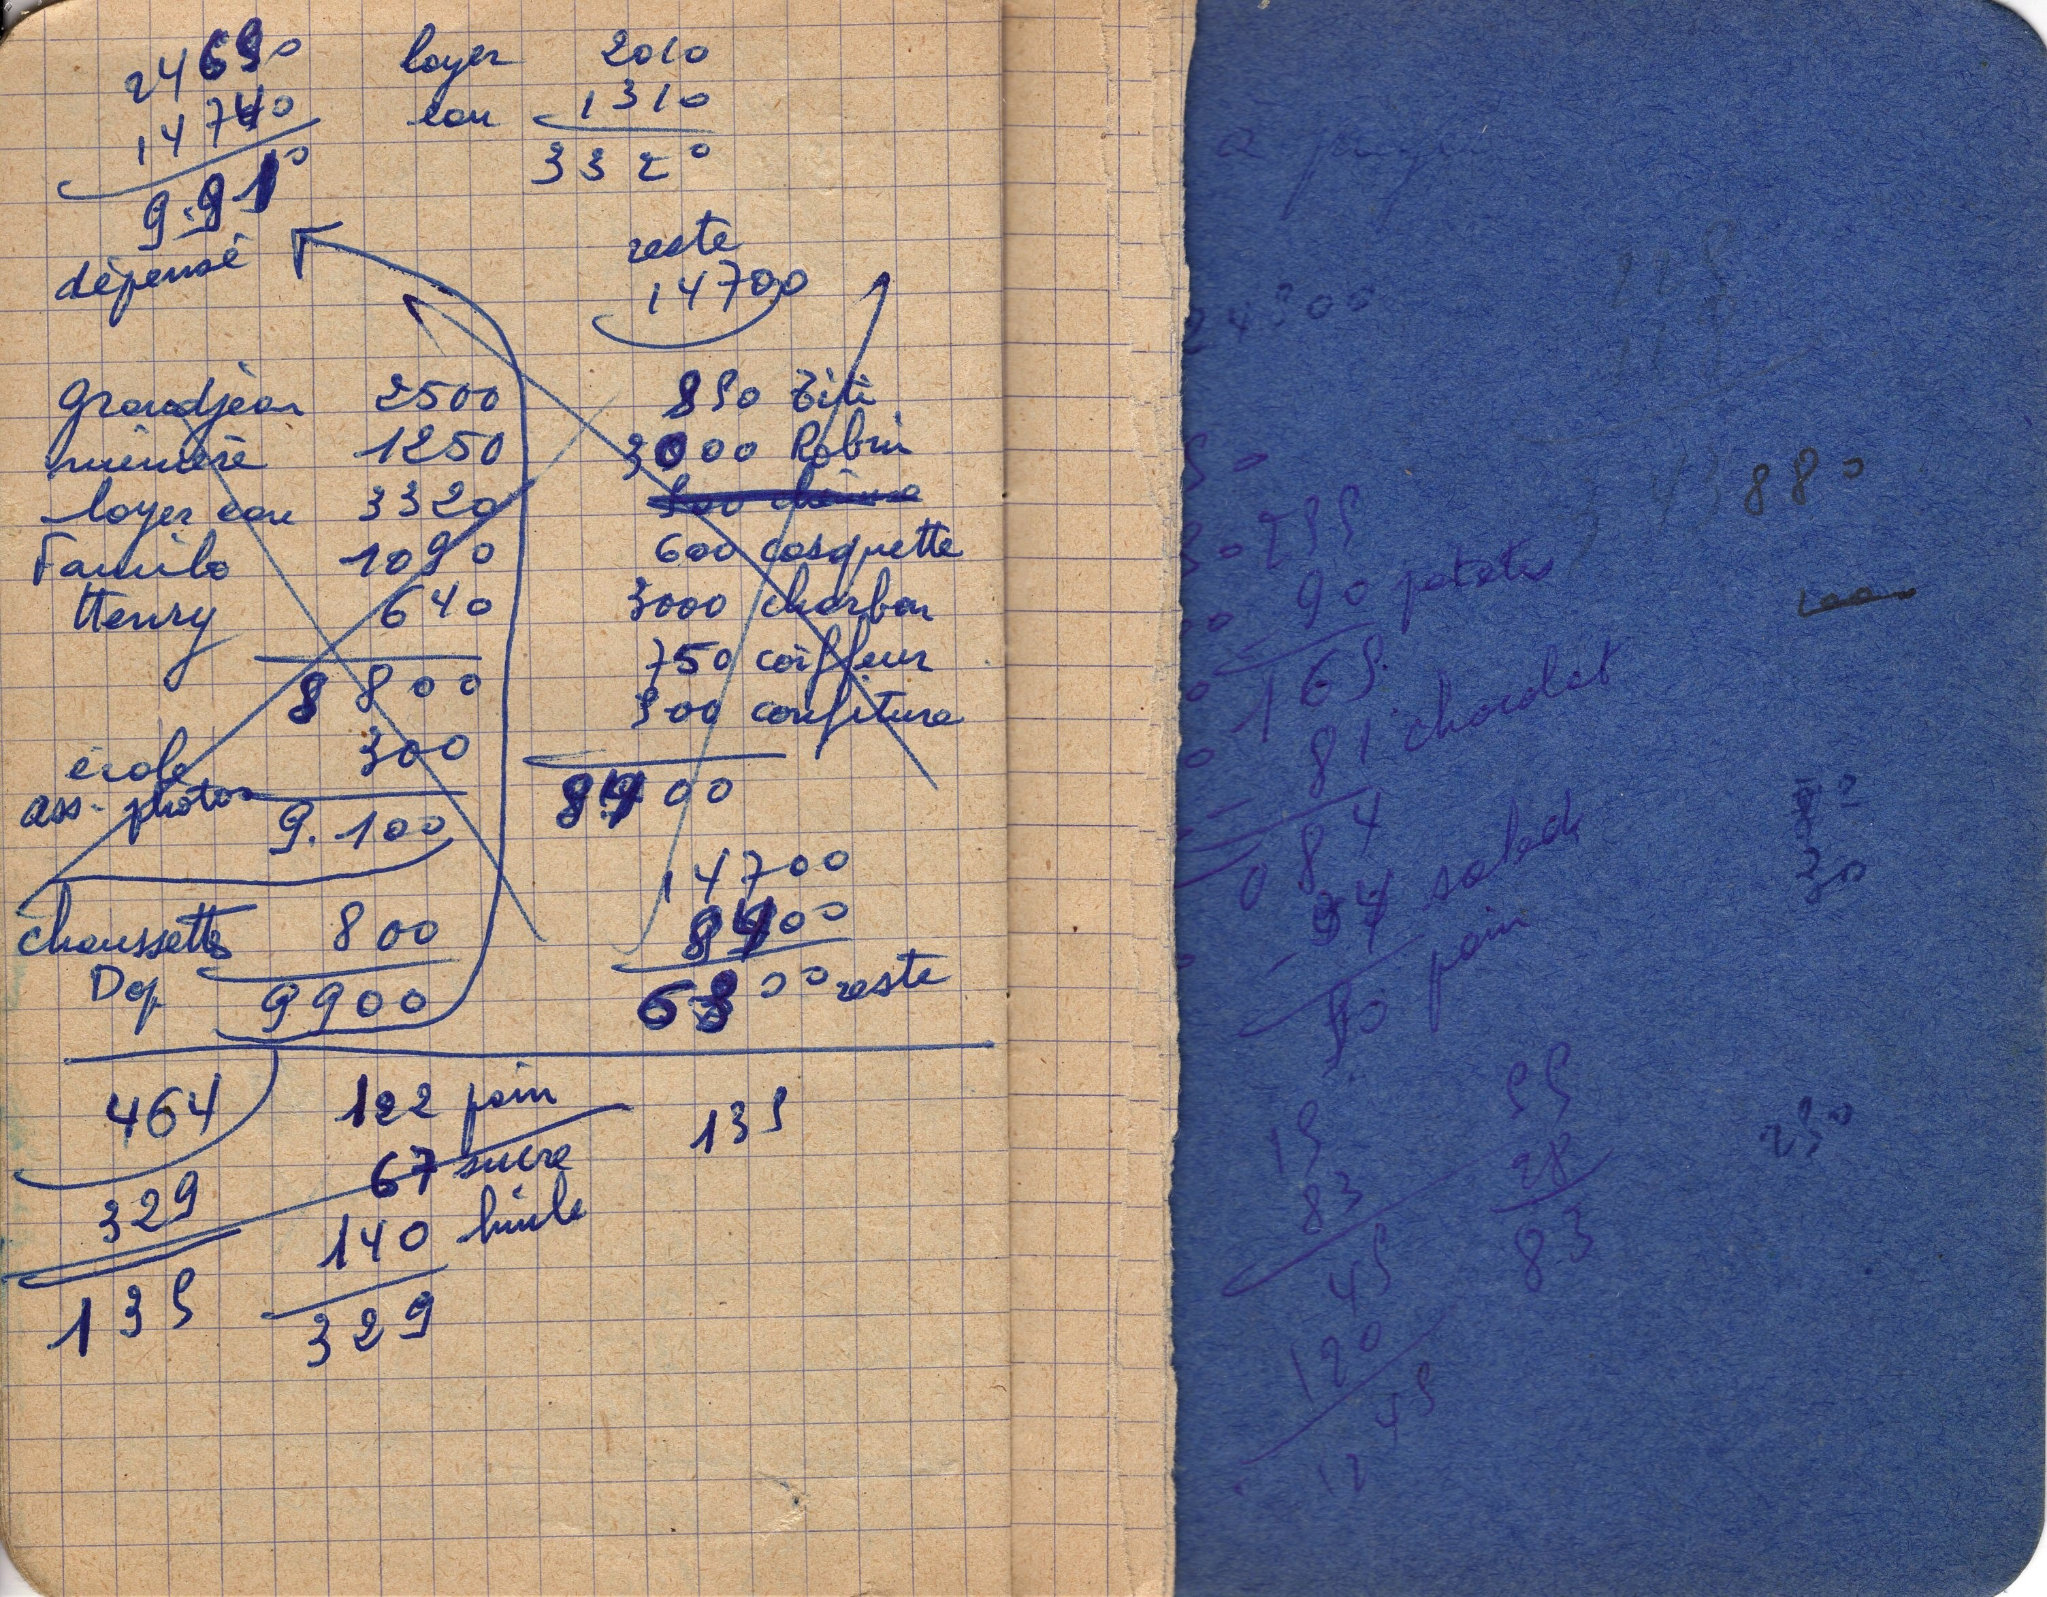 24690
14740
9.910
dépensé
loyer 2010
eau 1310
3320
reste
14700
Grandjean 2500
mémère 1250
loyer eau 3320
Familo 1090
Henry 640
8800
école 300
ass. photos
9.100
chaussettes 800
Dep 9900
850 Titi
3000 Robin
600 casquette
3000 charbon
750 coiffeur
500 confiture
14700
reste
464
329
135
122 pain
67 sucre
140 huile
329
135
24300
880
90 petates
165
81 chocolat
84
salade
pain
15
83
45
120
45
12
55
28
83
30
250